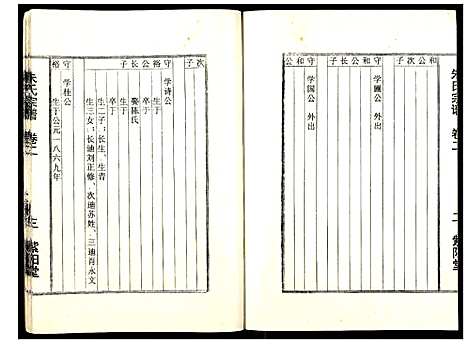 朱氏宗谱 卷二 二 紫阳堂
守和公
学圃公 外出
守和公
学国公 外出
次子
守裕公长子
学诗公
生于
卒于
娶陈氏
生于
卒于
生二子：长生、生青
生三女：长迪刘正修、次迪苏姓、三迪肖永文
守裕
学仕公
生于公元一八六九年
朱氏宗谱 卷二 三 紫阳堂